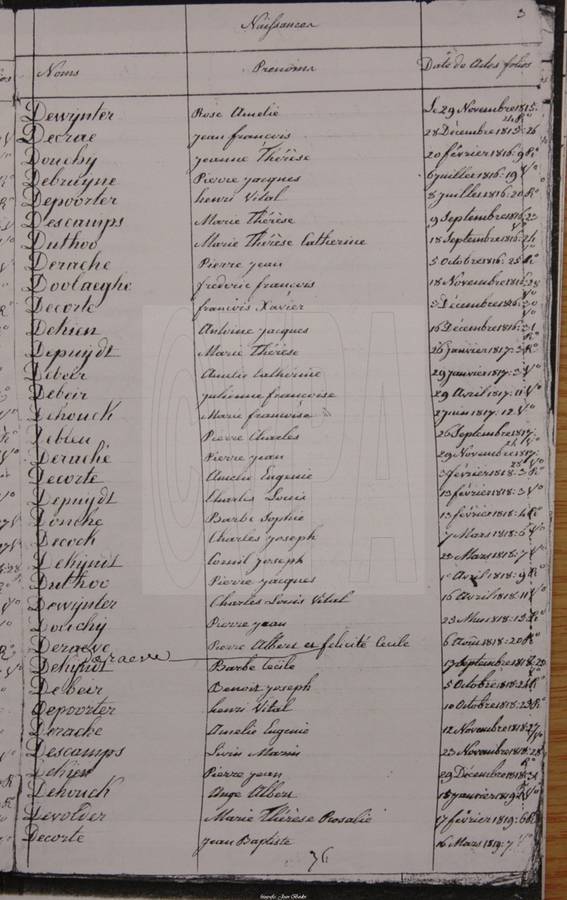 3
Naissances
Noms Prénoms Date de Actes folios
Dewynter Rose Amelie Le 29 Novembre 1815.
Decrae jean francois 28 Décembre 1815. 26
Douchy jeanne Thérèse 20 février 1816. 9
Debruyne Pierre jacques 6 juillet 1816. 19 Vo
Depoorter henri Vital 8 juillet 1816. 20
Descamps Marie Thérèse 9 Septembre 1816. 23
Duthoo Marie Thérèse Catherine 18 Septembre 1816. 24
Derache Pierre jean 5 Octobre 1816. 25
Doolaeghe frederic françois 18 Novembre 1816. 28
Decorte françois Xavier 3 Décembre 1816. 30
Dehien Antoine jacques 16 Décembre 1816. 31
Depuydt Marie Thérèse 26 janvier 1817. 3
Debeir Amelie Catherine 29 janvier 1817. 3 Vo
Debeir julienne françoise 29 Avril 1817. 11 Vo
Dehouck Marie françoise 27 juin 1817. 12 Vo
Pierre Charles 26 Septembre 1817.
Derache Pierre jean 29 Novembre 1817.
Decorte Amelie Eugenie 3 février 1818. 3
Depuydt Charles Louis 13 février 1818. 3 Vo
Barbe Sophie 13 février 1818. 4
Decock Charles joseph 7 Mars 1818. 5 Vo
Cornil joseph 22 Mars 1818. 7 Vo
Duthoo Pierre jacques 1 Avril 1818. 9
Dewynter Charles Louis Vital 16 Avril 1818. 11 Vo
Douchy Pierre jean 23 Mai 1818. 15
Deraeve Pierre Albert et félicité Cecile 6 Août 1818. 20
Deraeve Barbe Cecile 17 Septembre 1818. 22
Debeer Benoit joseph 5 Octobre 1818. 24
Depoorter henri Vital 10 Octobre 1818. 25
Derache Amelie Eugenie 12 Novembre 1818. 27
Descamps Livin Marin 23 Novembre 1818. 28
Dehien Pierre jean 29 Décembre 1818. 31
Dehouck Ange Albert 18 janvier 1819.
Devolder Marie Thérèse Rosalie 17 février 1819. 6
Decorte jean Baptiste 16 Mars 1819. 7
36
CGPA